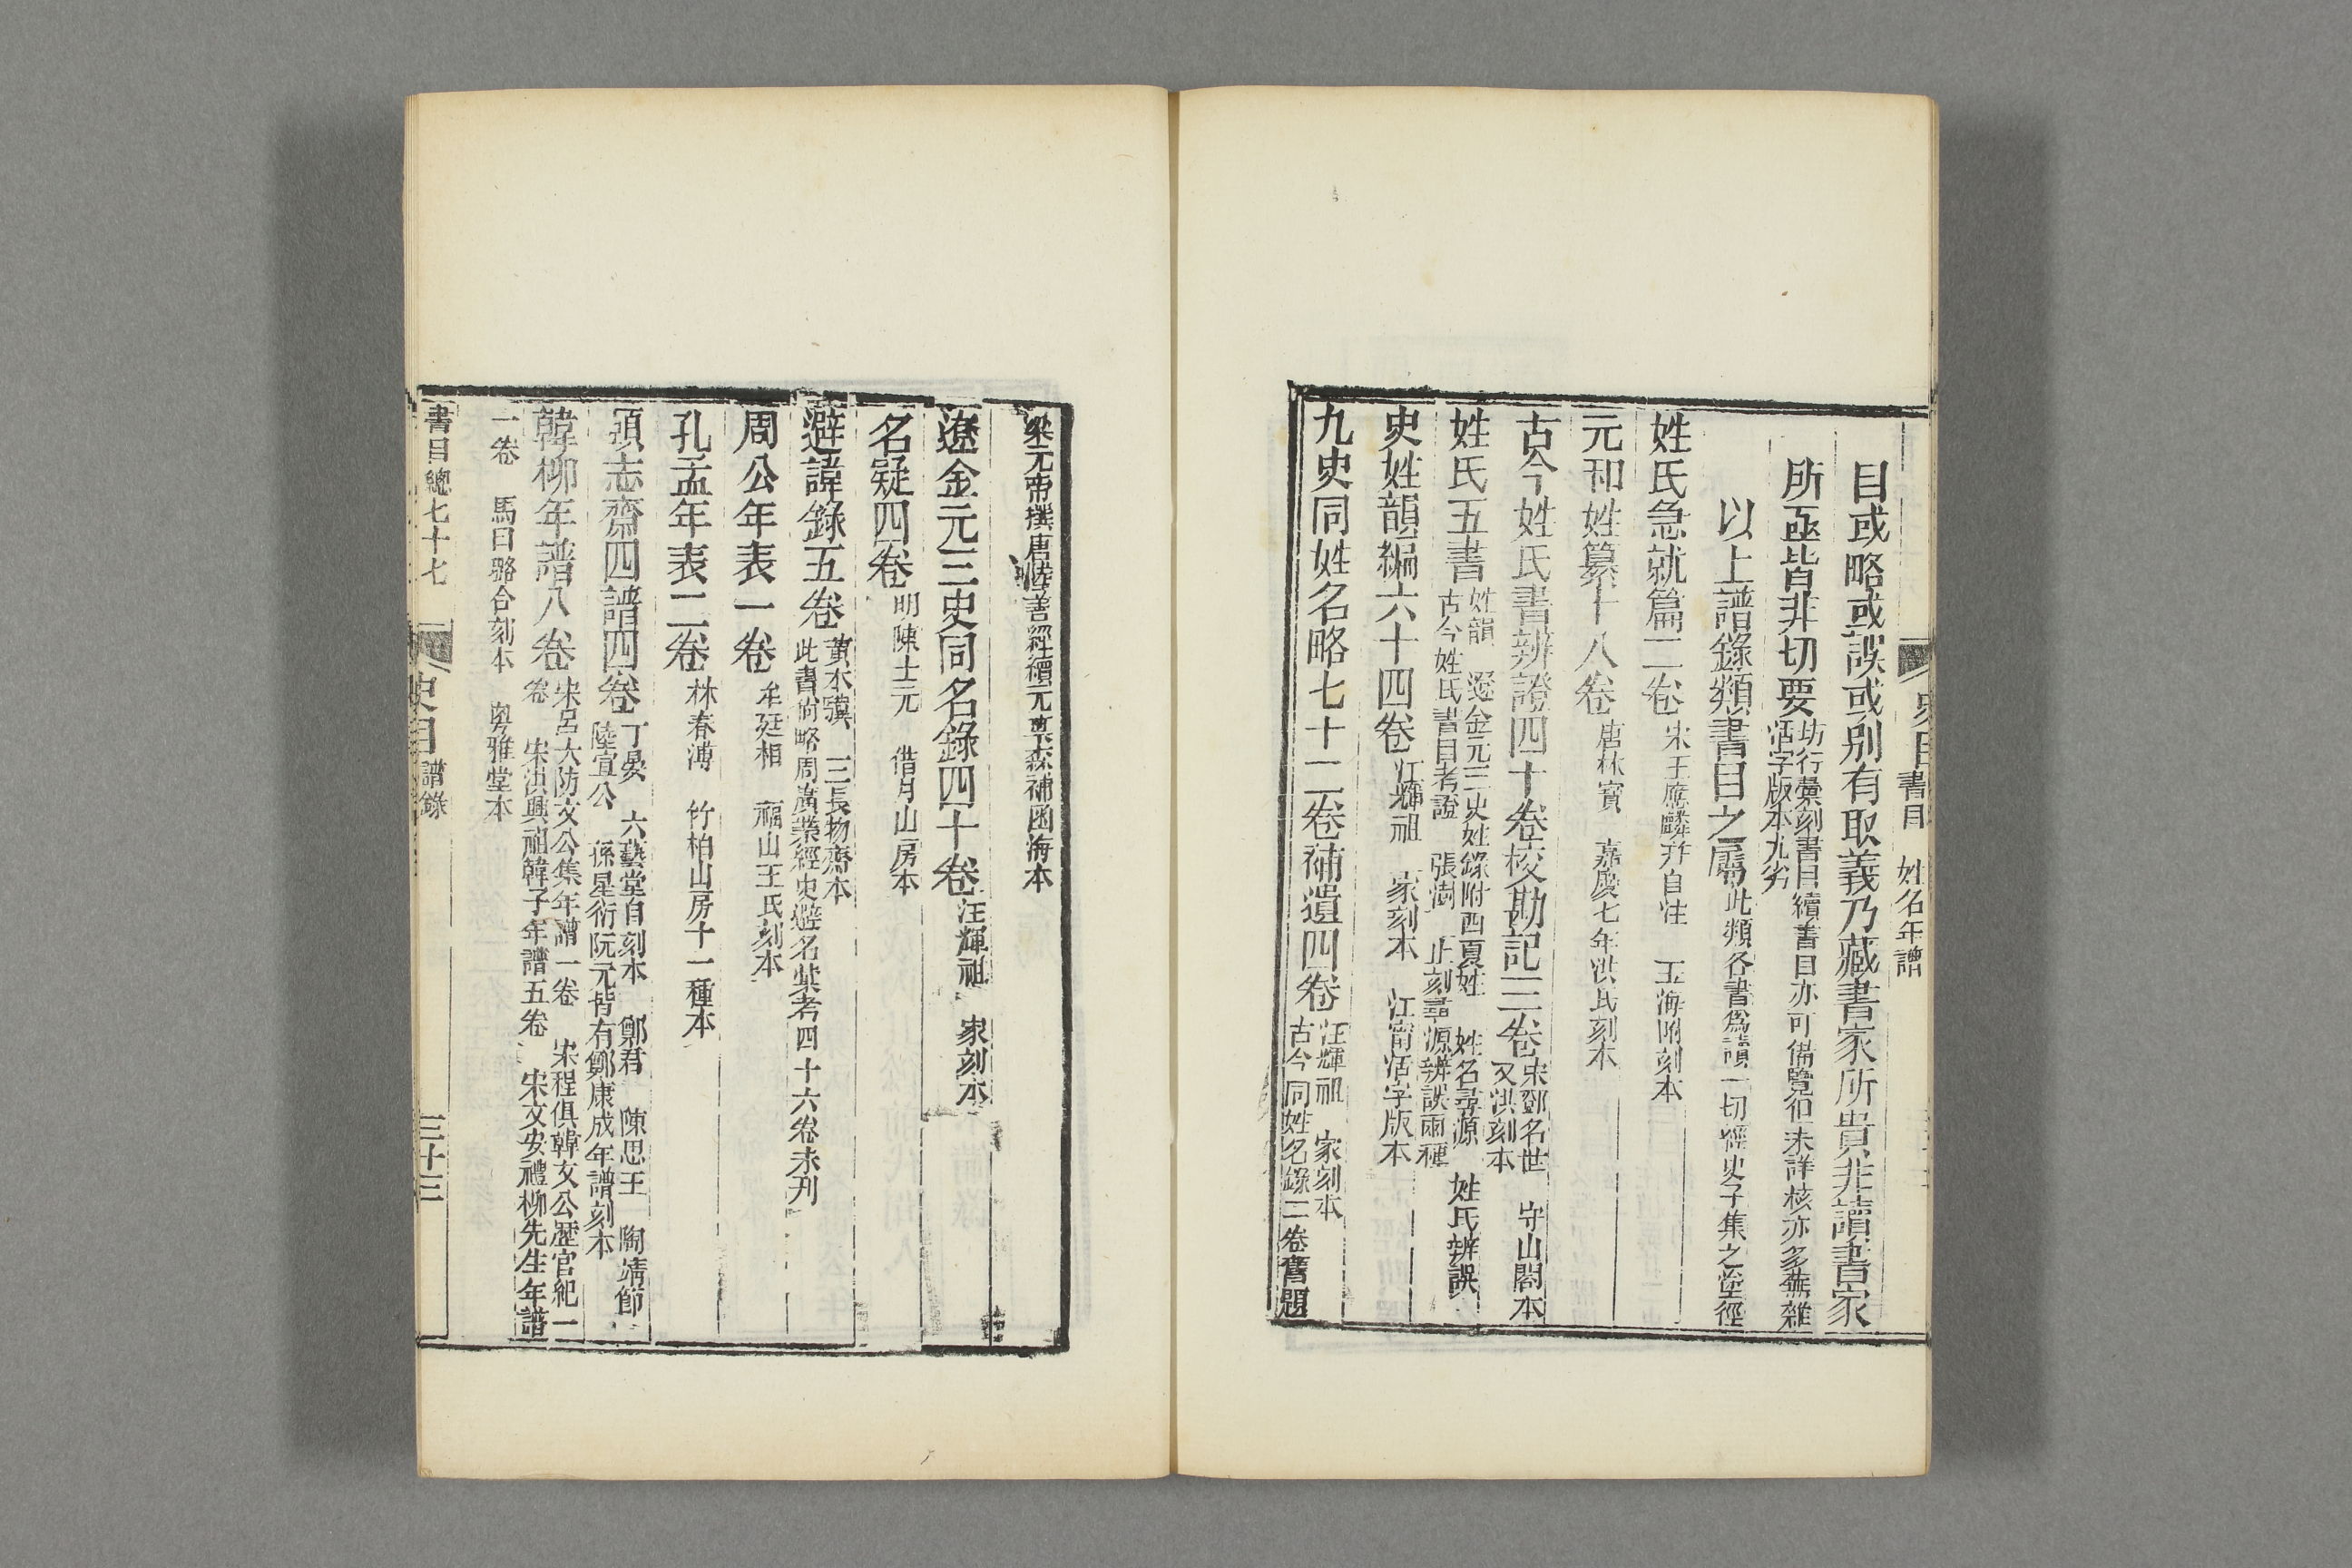 史目 書目 姓名年譜
目或略或誤或别有取義乃藏書家所貴非讀書家
所亟皆非切要坊行彙刻書目續書目亦可備覽但未詳核亦多蕪雜
活字版本尤劣
以上譜錄類書目之屬此類各書爲讀一切經史子集之塗徑
姓氏急就篇二卷宋王應麟并自注 玉海附刻本
元和姓纂十八卷唐林寶 嘉慶七年洪氏刻本
古今姓氏書辨證四十卷校勘記三卷宋鄧名世 守山閣本
又洪刻本
姓氏五書姓韻 遼金元三史姓錄附西夏姓 姓名尋源 姓氏辨誤
古今姓氏書目考證 張澍 止刻尋源辨誤兩種
史姓韻編六十四卷汪輝祖 家刻本 江甯活字版本
九史同姓名略七十二卷補遺四卷汪輝祖 家刻本
古今同姓名錄二卷舊題
梁元帝撰唐陸善經續元葉森補函海本
遼金元三史同名錄四十卷汪輝祖 家刻本
名疑四卷明陳士元 借月山房本
避諱錄五卷黃本驥 三長物齋本
此書尙略周廣業經史避名彙考四十六卷未刋
周公年表一卷牟廷相 福山王氏刻本
孔孟年表二卷林春溥 竹柏山房十一種本
頤志齋四譜四卷丁晏 六藝堂自刻本 鄭君 陳思王 陶靖節
陸宣公 孫星衍阮元皆有鄭康成年譜刻本
韓柳年譜八卷宋呂大防文公集年譜一卷 宋程俱韓文公歷官紀一
卷 宋洪興祖韓子年譜五卷 宋文安禮柳先生年譜
一卷 馬曰璐合刻本 粤雅堂本
書目總七十七 史目 譜錄 三十三